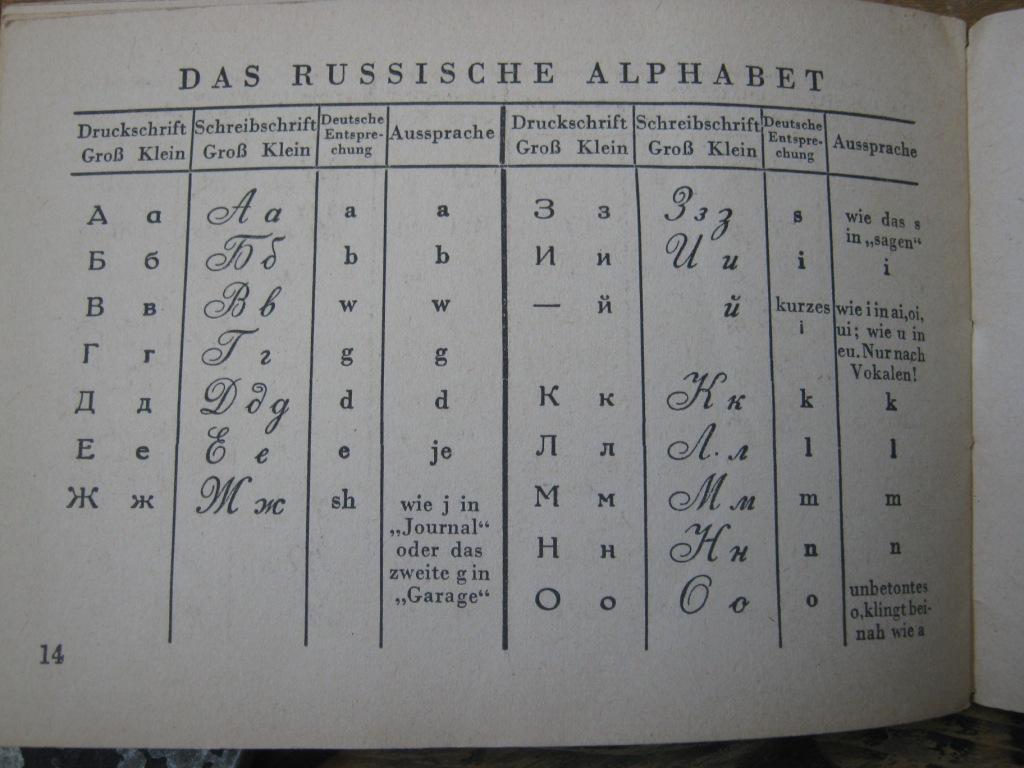 DAS RUSSISCHE ALPHABET
Druckschrift Schreibschrift Deutsche Entspre-chung Aussprache Druckschrift Schreibschrift Deutsche Entspre-chung Aussprache
Groß Klein Groß Klein Groß Klein Groß Klein
А а А а a a
Б б Б б b b
В в В в w w
Г г Г г g g
Д д Д д д d d
Е е Е е e je
Ж ж Ж ж sh wie j in
„Journal“
oder das
zweite g in
„Garage“
З з З з з s wie das s
in „sagen“
И и И и i i
— й й kurzes i wie i in ai, oi,
ui; wie u in
eu. Nur nach
Vokalen!
К к К к k k
Л л Л л l l
М м М м m m
Н н Н н n n
О о О о o unbetontes
o, klingt bei-
nah wie a
14